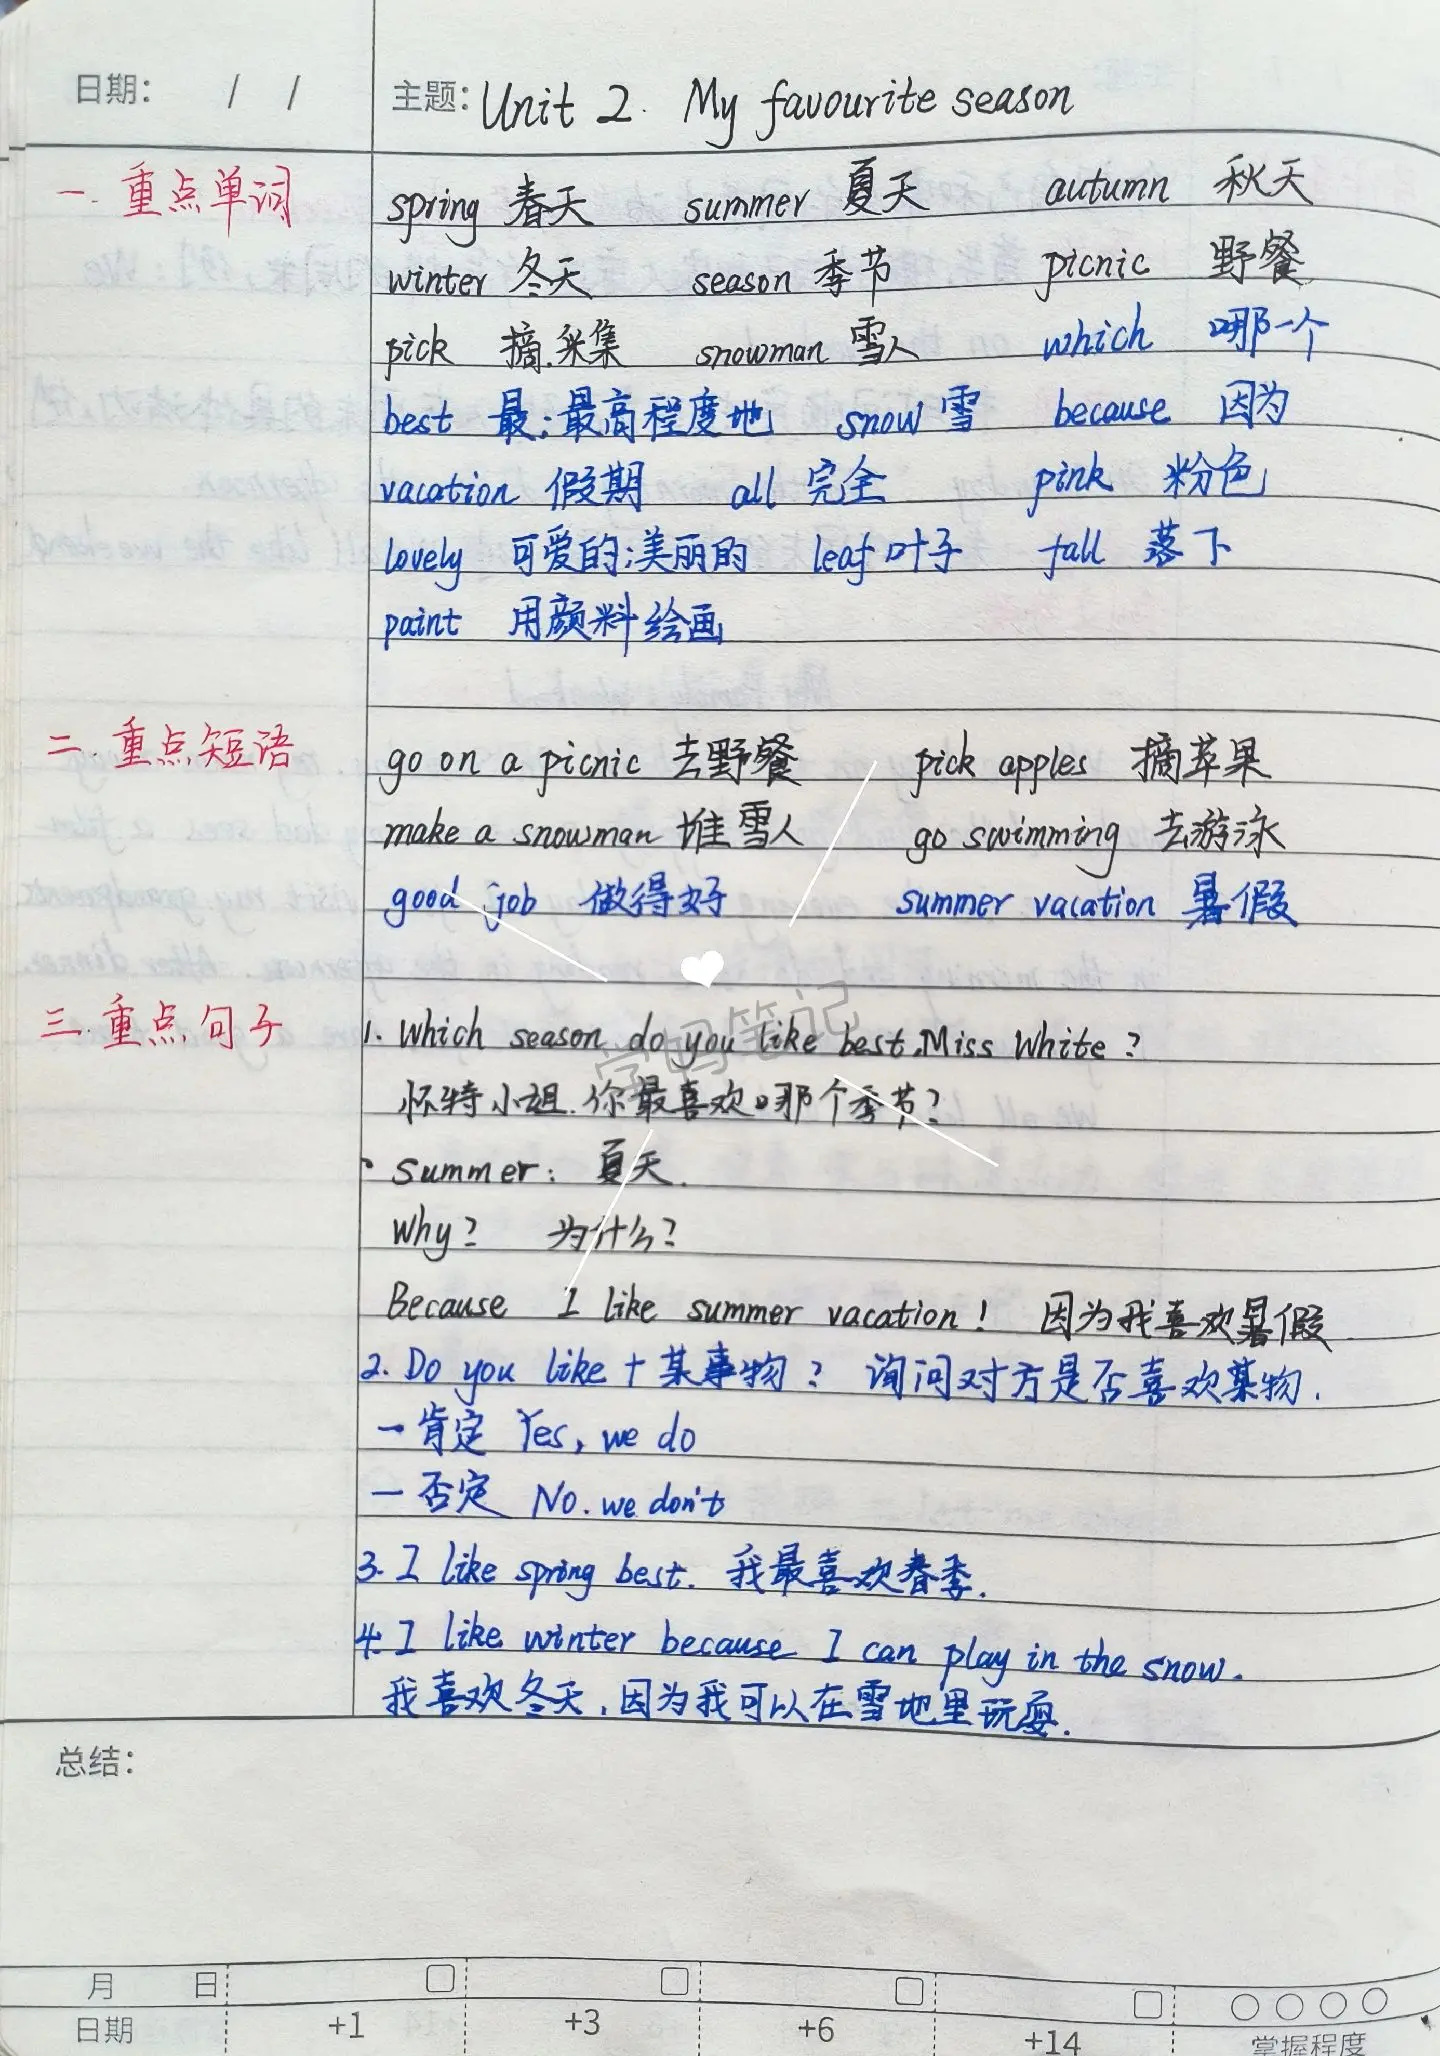 日期: / /
主题: Unit 2. My favourite season
一.重点单词
spring 春天 summer 夏天 autumn 秋天
winter 冬天 season 季节 picnic 野餐
pick 摘.采集 snowman 雪人 which 哪一个
best 最;最高程度地 snow 雪 because 因为
vacation 假期 all 完全 pink 粉色
lovely 可爱的;美丽的 leaf 叶子 fall 落下
paint 用颜料绘画
二.重点短语
go on a picnic 去野餐 pick apples 摘苹果
make a snowman 堆雪人 go swimming 去游泳
good job 做得好 summer vacation 暑假
三.重点句子
1. Which season do you like best, Miss White?
怀特小姐.你最喜欢哪个季节?
学妈笔记
Summer: 夏天.
Why? 为什么?
Because I like summer vacation! 因为我喜欢暑假
2. Do you like + 某事物? 询问对方是否喜欢某物.
一肯定 Yes, we do
一否定 No. we don't
3. I like spring best. 我最喜欢春季.
4. I like winter because I can play in the snow.
我喜欢冬天,因为我可以在雪地里玩耍.
总结:
月 日
日期 +1 +3 +6 +14 掌握程度